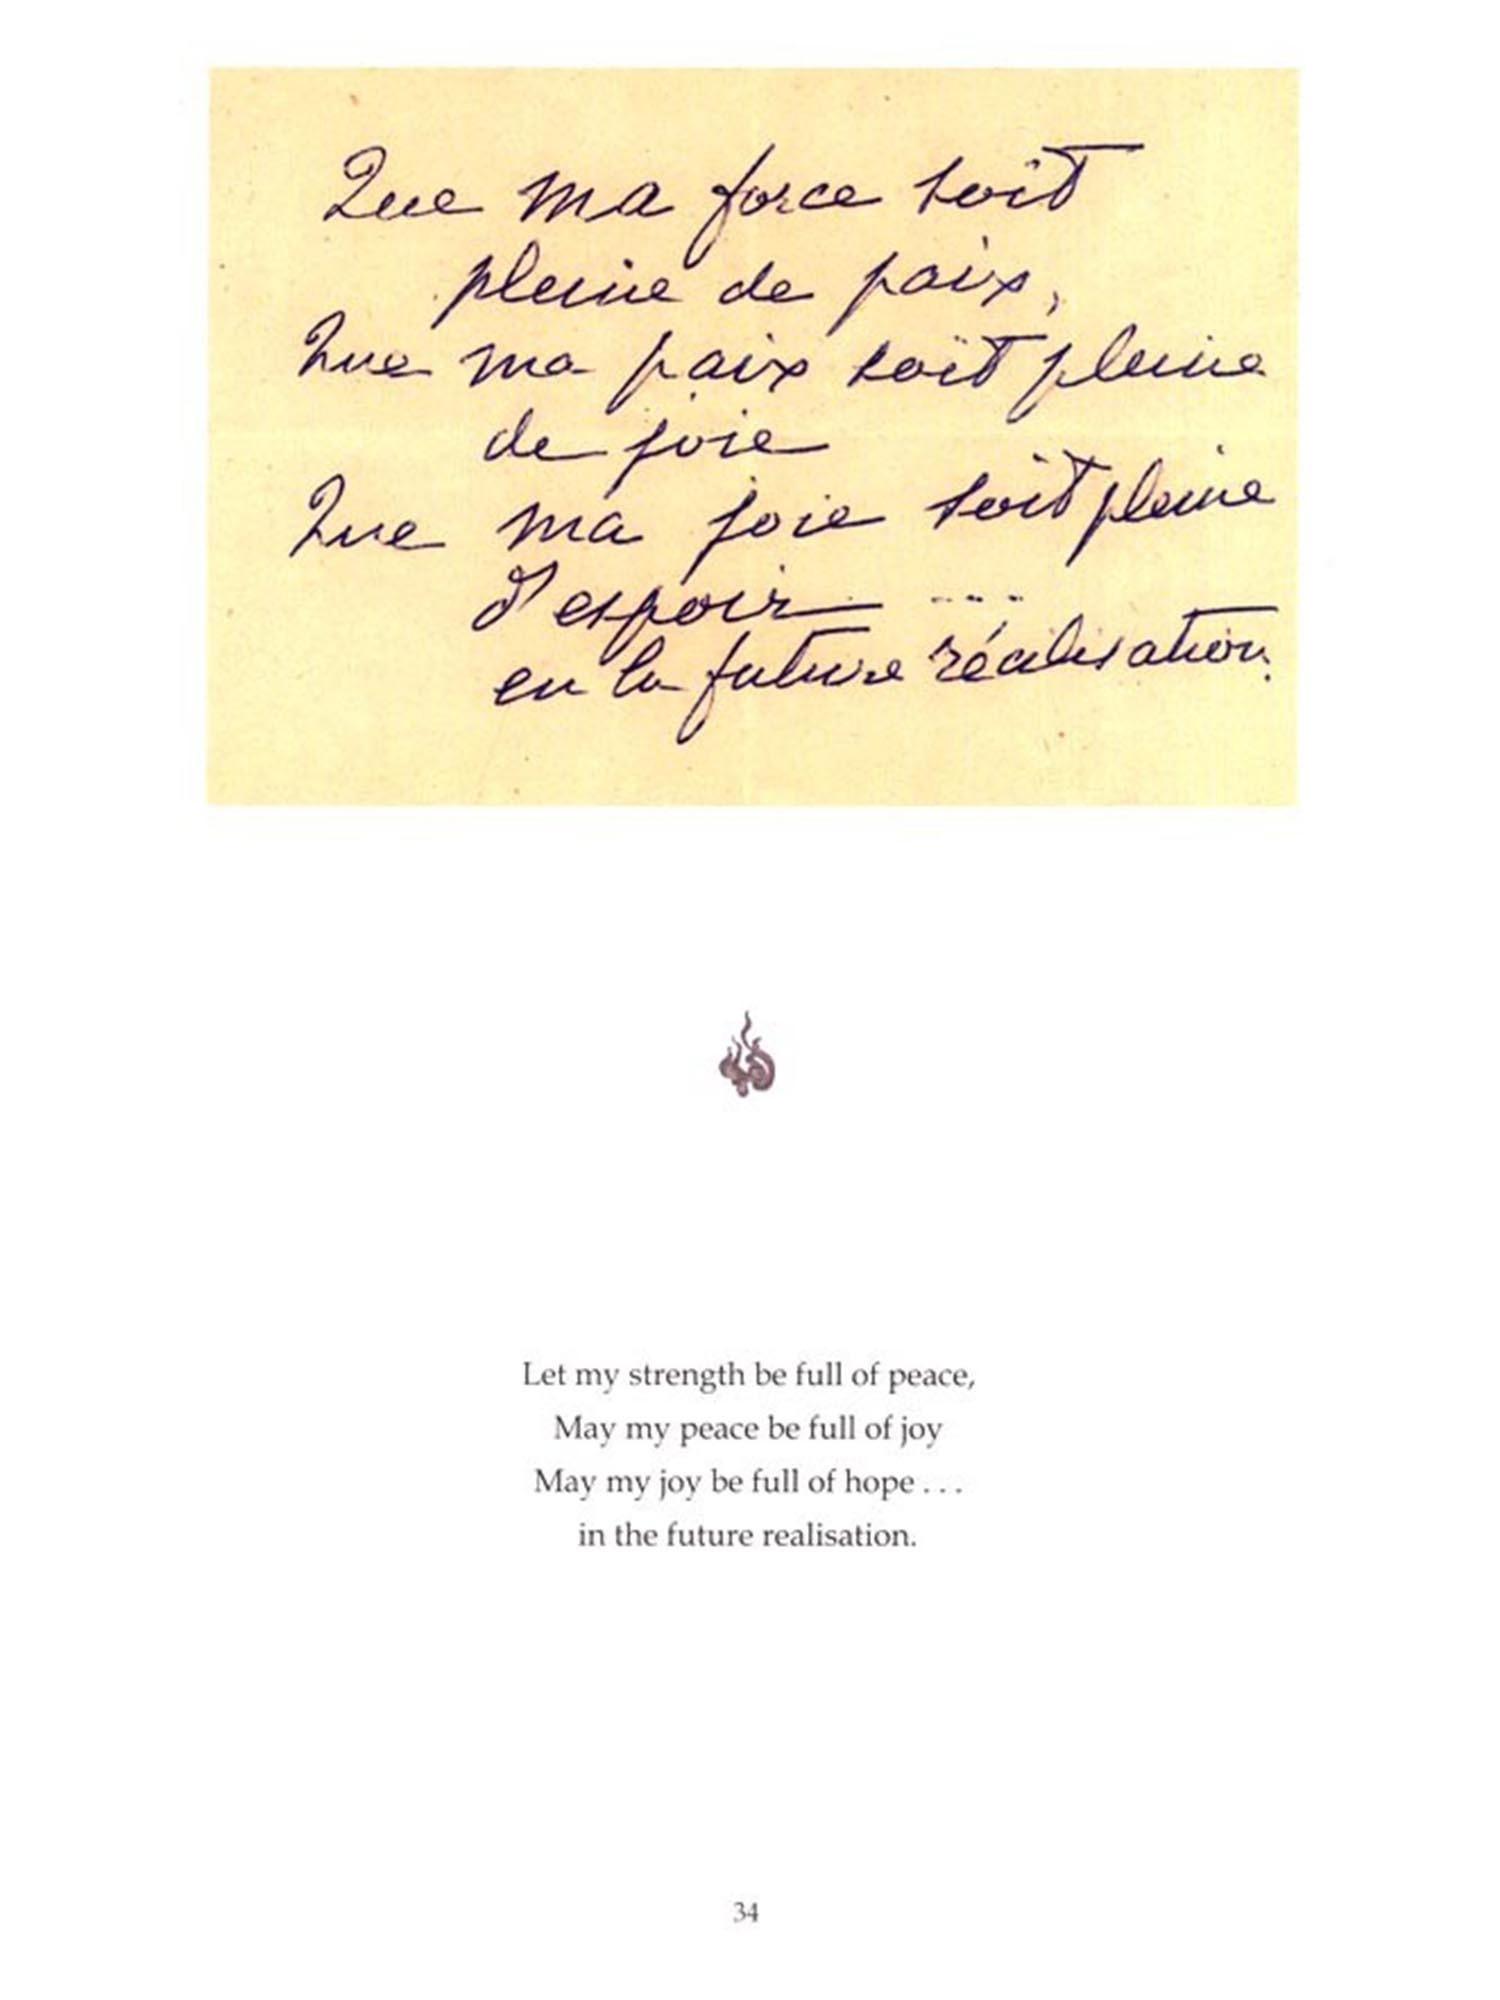 Que ma force soit
pleine de paix,
Que ma paix soit pleine
de joie
Que ma joie soit pleine
d'espoir ....
en la future réalisation.
Let my strength be full of peace,
May my peace be full of joy
May my joy be full of hope . . .
in the future realisation.
34